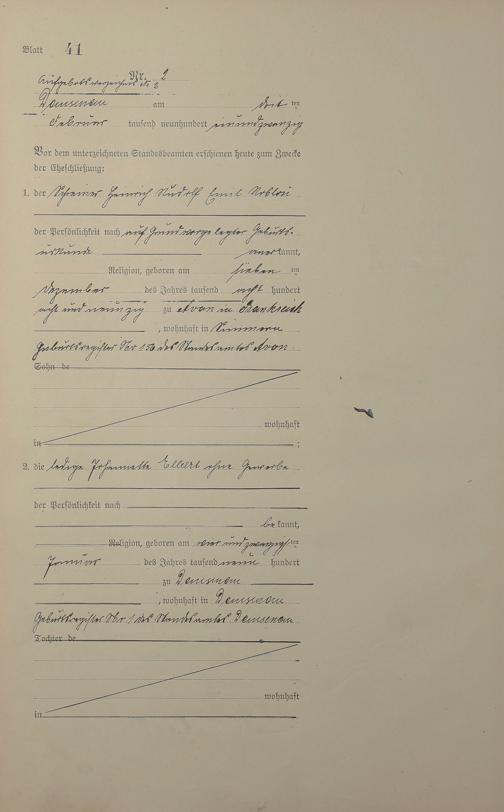 Blatt 41
Nr. 2
Aufgebotsverzeichnis Nr 2
am dritten
Februar tausend neunhundert neunundzwanzig
Vor dem unterzeichneten Standesbeamten erschienen heute zum Zwecke
der Eheschließung:
1. der Schreiner Heinrich Rudolf Emil
der Persönlichkeit nach auf Grund vorgelegter Geburts-
urkunde anerkannt,
Religion, geboren am sieben ten
Dezember des Jahres tausend acht hundert
acht und neunzig zu Avon in Frankreich
, wohnhaft in Simmern
Geburtsregister Nr 153 des Standesamtes Avon
Sohn de
wohnhaft
in ;
2. die ledige Johannette Elbert ohne Gewerbe
der Persönlichkeit nach
bekannt,
Religion, geboren am vier und zwanzigsten
Januar des Jahres tausend neun hundert
zu
, wohnhaft in
Geburtsregister Nr 1 des Standesamtes
Tochter de
wohnhaft
in